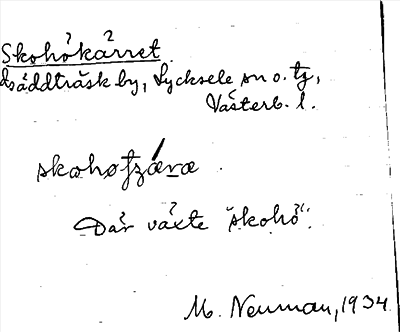 Skohökärret.
Gäddträsk by, Lycksele sn o. tg,
Västerb. l.
Där växte "skohö".
M. Neuman, 1934